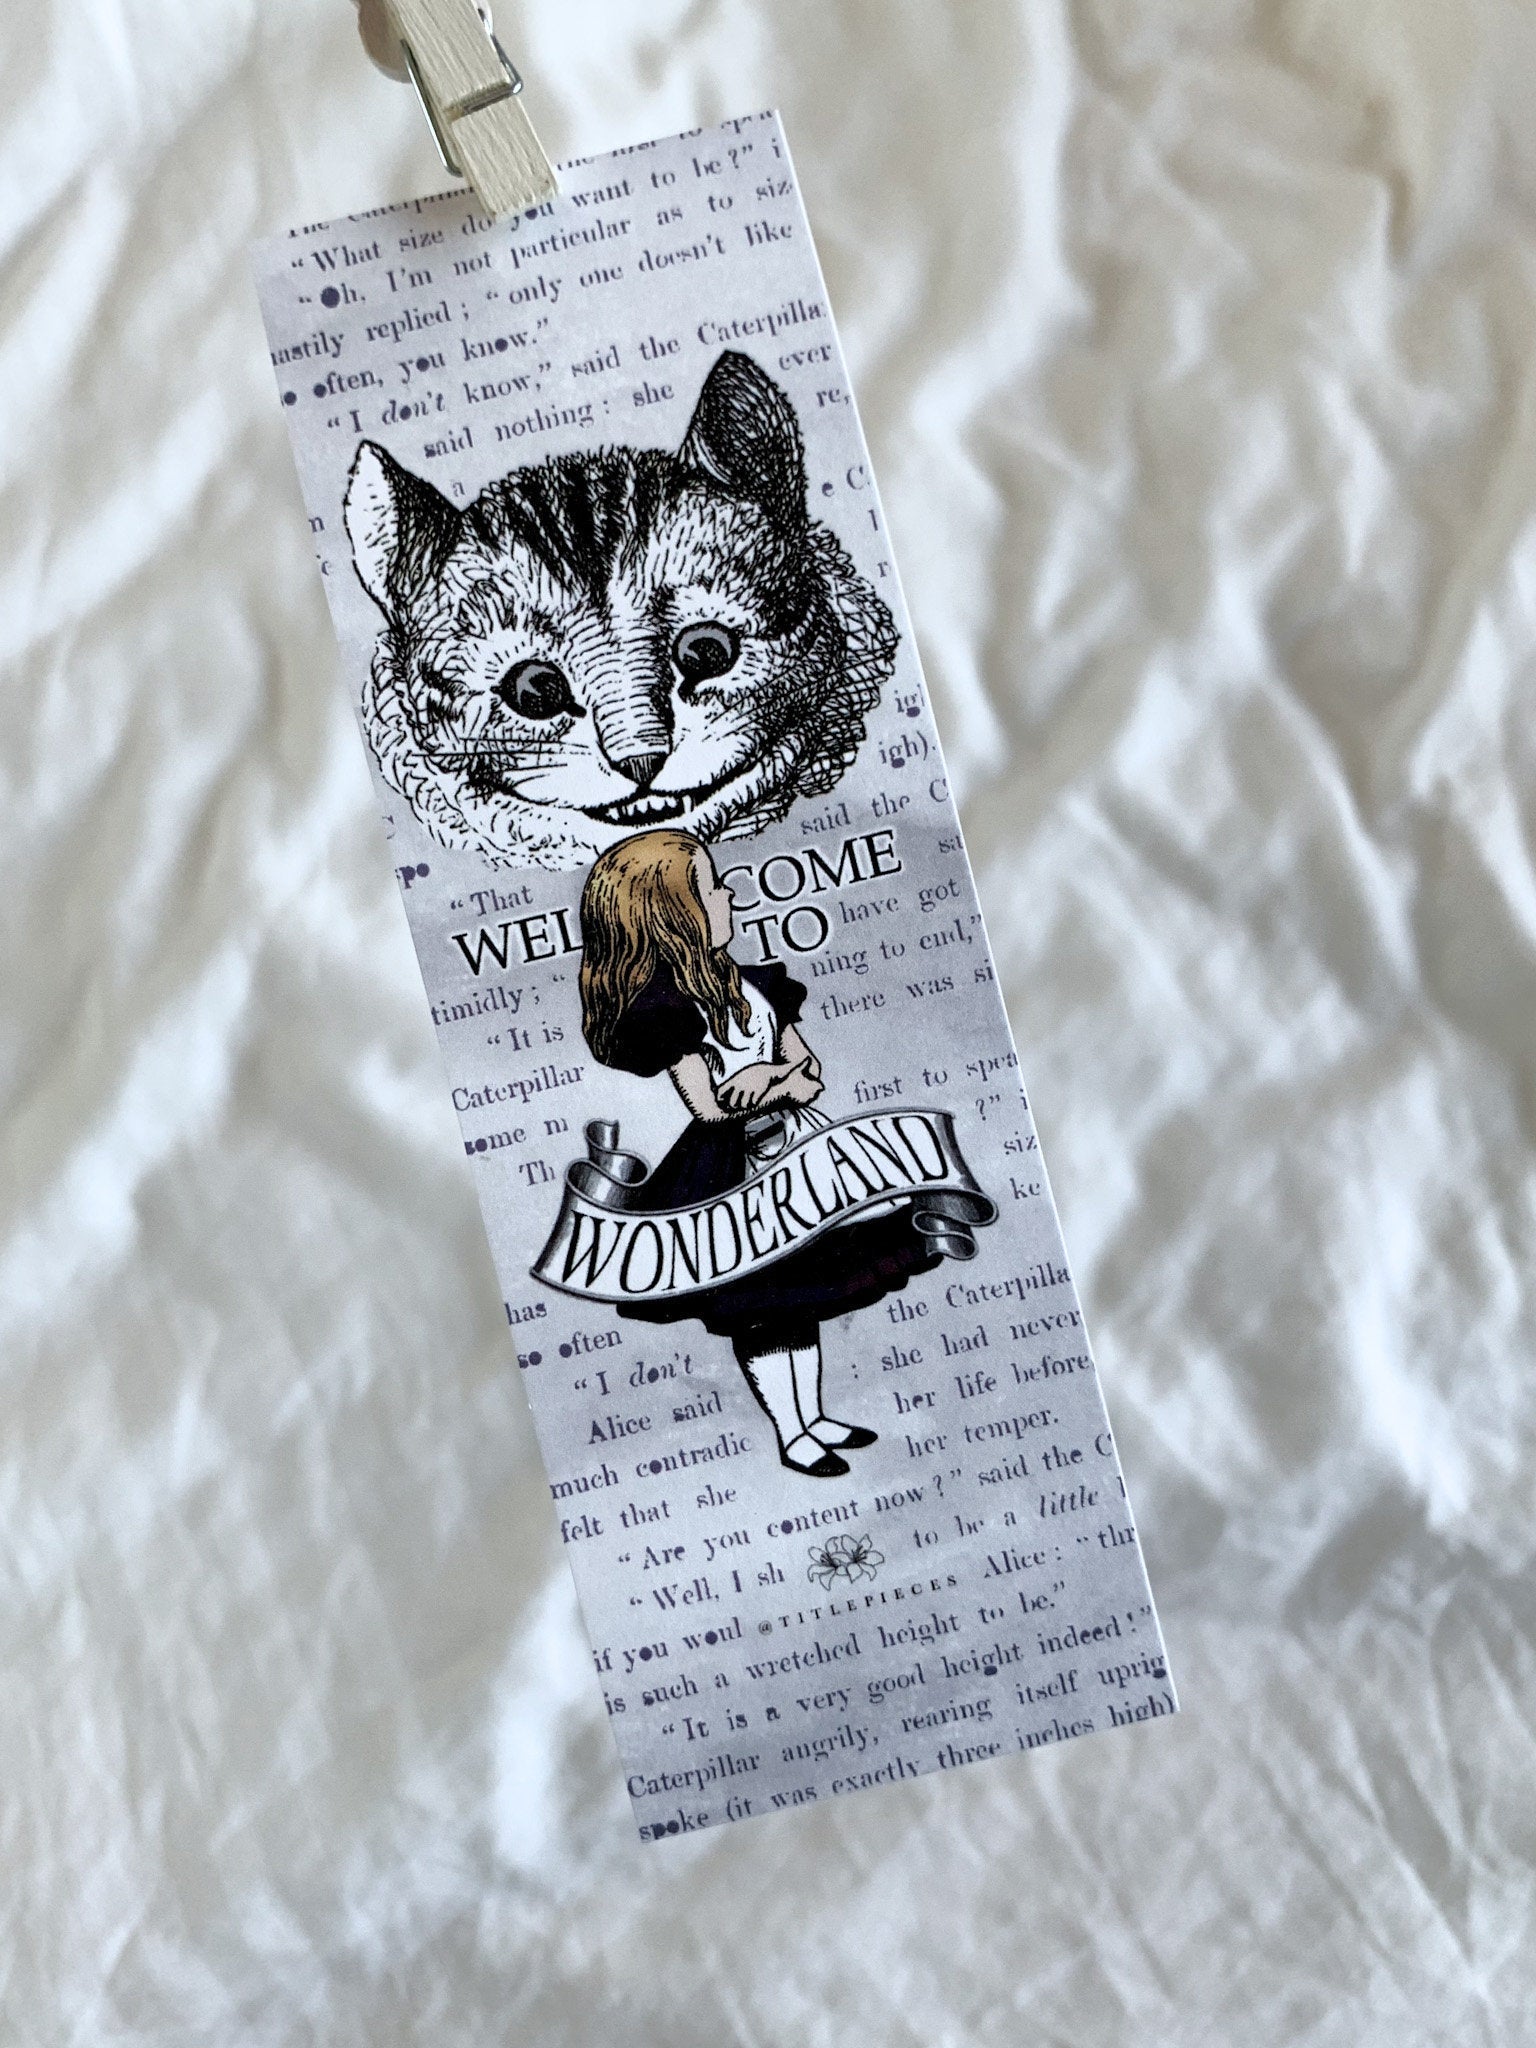 "What size do you want to be?" i
"Oh, I'm not particular as to siz
hastily replied; "only one doesn't like
so often, you know."
"I don't know," said the Caterpilla
said nothing: she ever
a re,
e C
igh).
said the C
spo
"That
WELCOME
TO
have got
timidly; "
ning to end,"
"It is
there was si
Caterpillar
first to spea
some m
?" i
Th
siz
ke
WONDERLAND
has
the Caterpilla
so often
: she had never
"I don't
her life before,
Alice said
her temper.
much contradic
felt that she
"Are you content now?" said the C
"Well, I sh to be a little l
if you woul @TITLEPIECES Alice: "thr
is such a wretched height to be."
"It is a very good height indeed!"
Caterpillar angrily, rearing itself uprig
spoke (it was exactly three inches high)